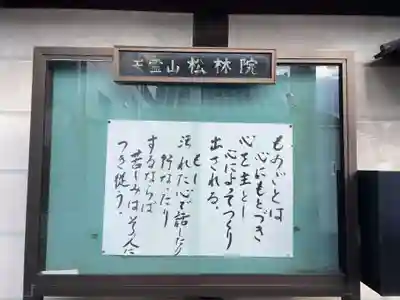 霊山松林院
ものごとは
心にもとづき
心を主とし
心によってつくり
出される。
もし
汚れた心で話したり
行なったり
するならば
苦しみはその人に
つき従う。